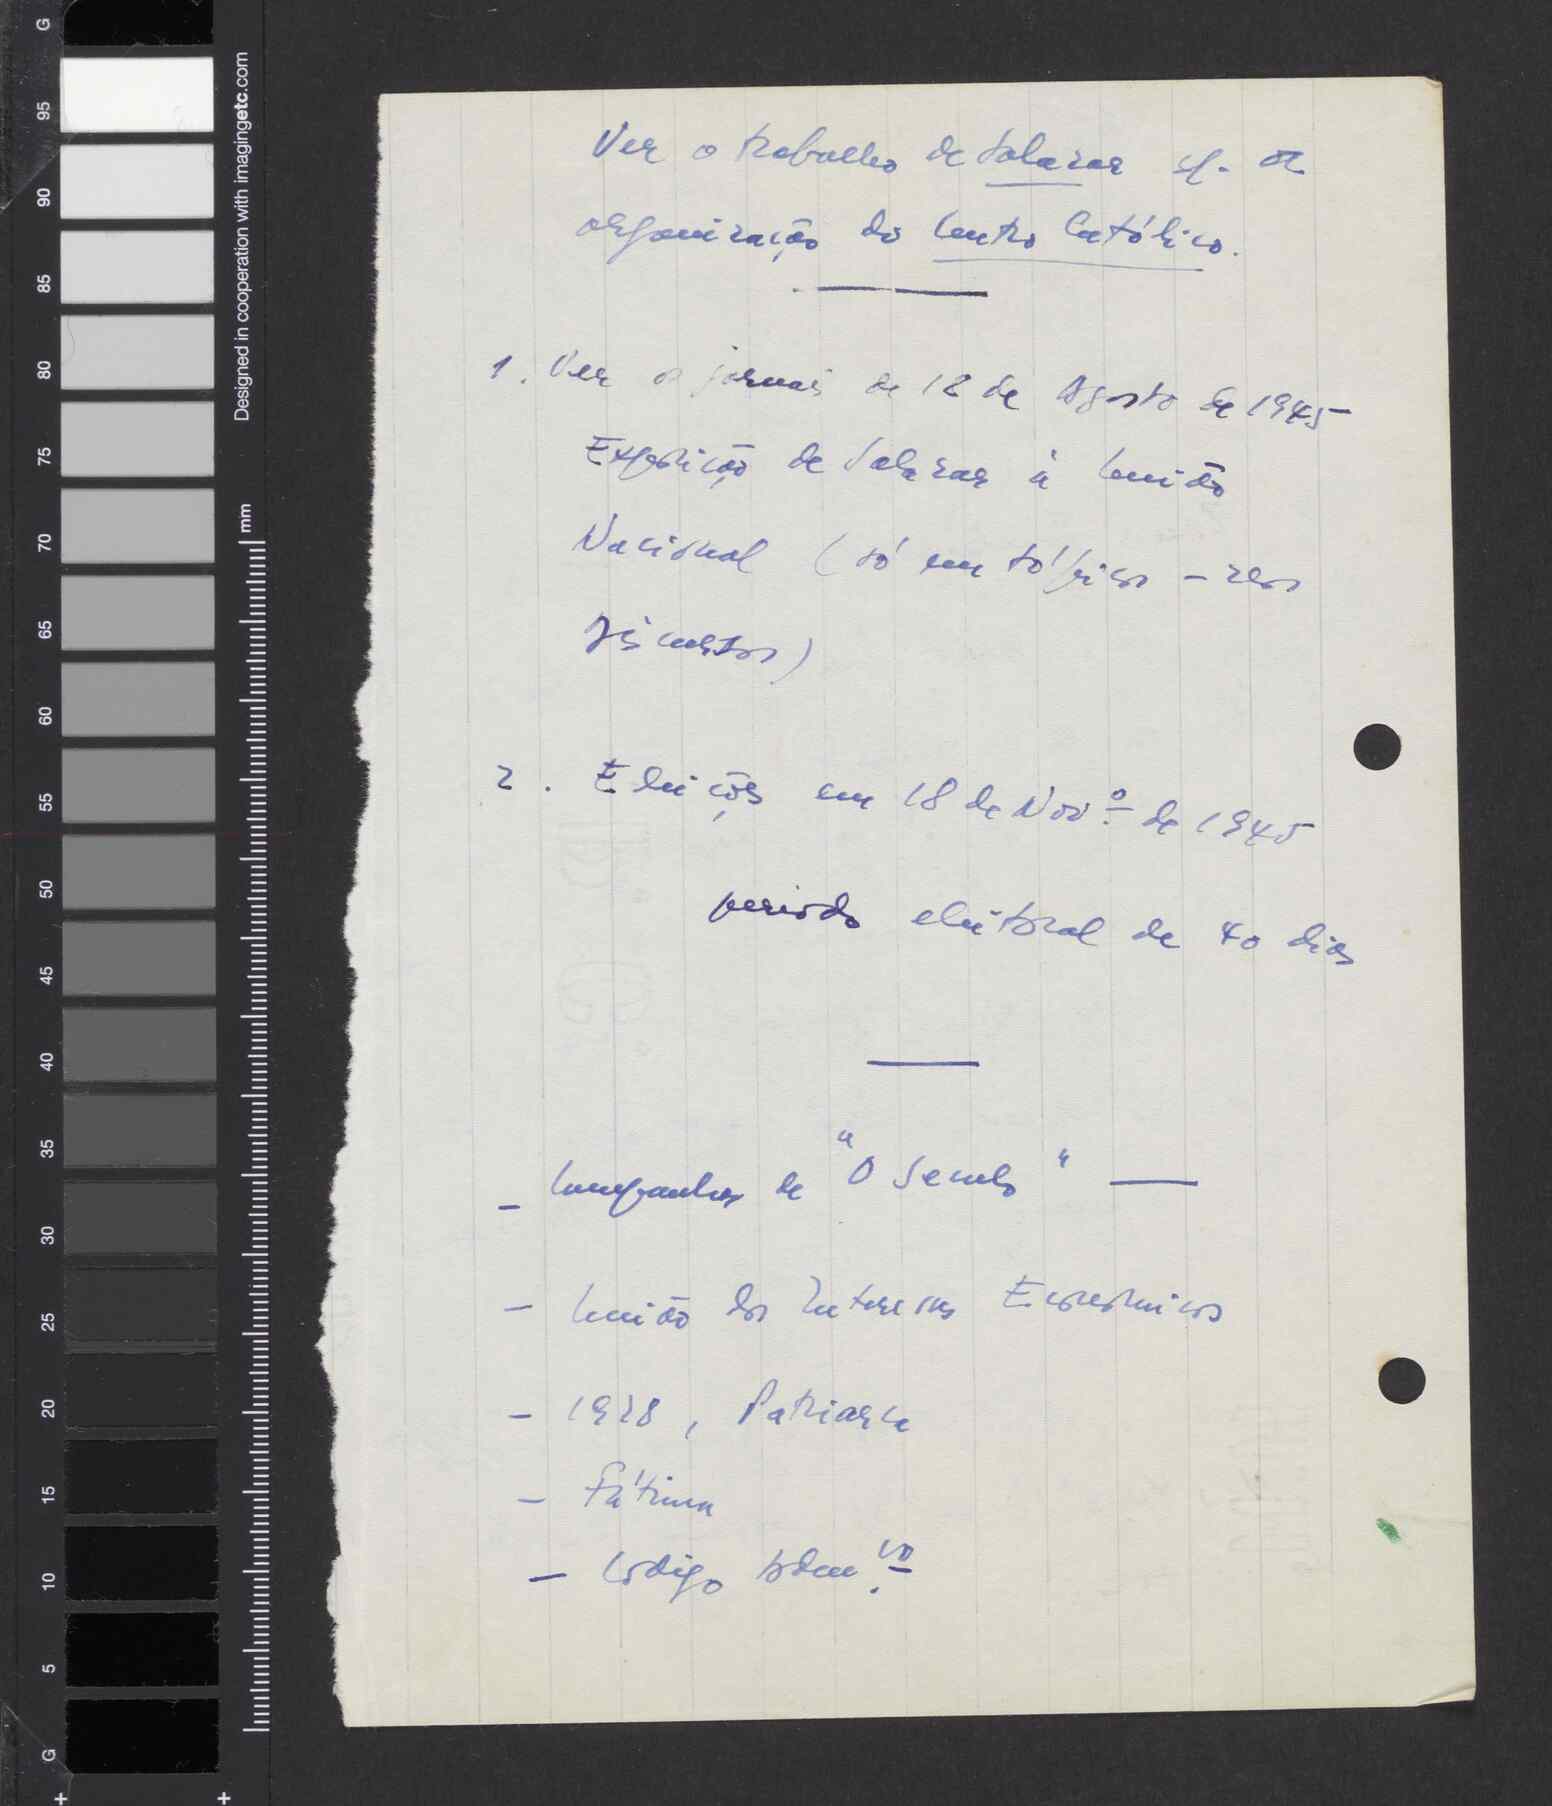 G
95
90
85
80
75
70
65
60
55
50
45
40
35
30
25
20
15
10
5
G
Designed in cooperation with imagingetc.com
mm
Ver o trabalho de Salazar sf. a
organização do Centro Católico.
1. Ver os jornais de 18 de Agosto de 1945
Exposição de Salazar à União
Nacional (só em tópicos -
)
2. Eleições em 18 de Nov.º de 1945
periodo eleitoral de 40 dias
- Campanhas de "O Seculo" —
- União dos Interesses Economicos
- 1928, Patriarca
- Fátima
- Codigo Adm.vo